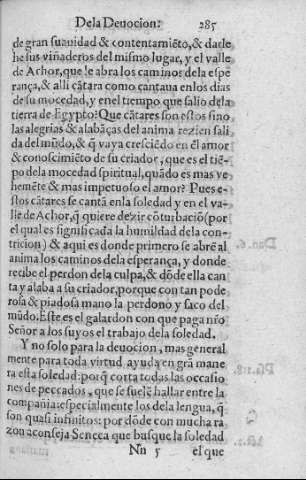 Dela Deuocion: 285
de gran suauidad & contentamiẽto, & darle
he sus viñaderos del mismo lugar, y el valle
de Achor, que le abra los caminos dela espe
rança, & alli cãtara como cantaua enlos dias
de su mocedad, y enel tiempo que salio dela
tierra de Egypto? Que cãtares son estos sino
las alegrias & alabãças del anima rezien sali
da del mũdo, & q̃ va ya cresciẽdo en el amor
& conoscimiẽto de su criador, que es el tiẽ-
po dela mocedad spiritual, quãdo es mas ve
hemẽte & mas impetuoso el amor? Pues e-
stos cãtares se cantã enla soledad y en el va-
lle de Achor, q̃ quiere dezir cõturbaciõ (por
el qual es significada la humildad dela con-
tricion) & aqui es donde primero se abrẽ al
anima los caminos dela esperança, y donde
recibe el perdon dela culpa, & dõde ella can
ta y alaba a su criador, porque con tan pode
rosa & piadosa mano la perdono y saco del
mũdo. Este es el galardon con que paga nr̃o
Señor a los suyos el trabajo dela soledad.
Y no solo para la deuocion, mas general
mente para toda virtud ayuda en grã mane
ra esta soledad: porq̃ corta todas las occasio
nes de peccados, que se suelẽ hallar entre la
compañia: especialmente los dela lengua, q̃
son quasi infinitos: por dõde con mucha ra
zon aconseja Seneca que busque la soledad
Nn 5 el que